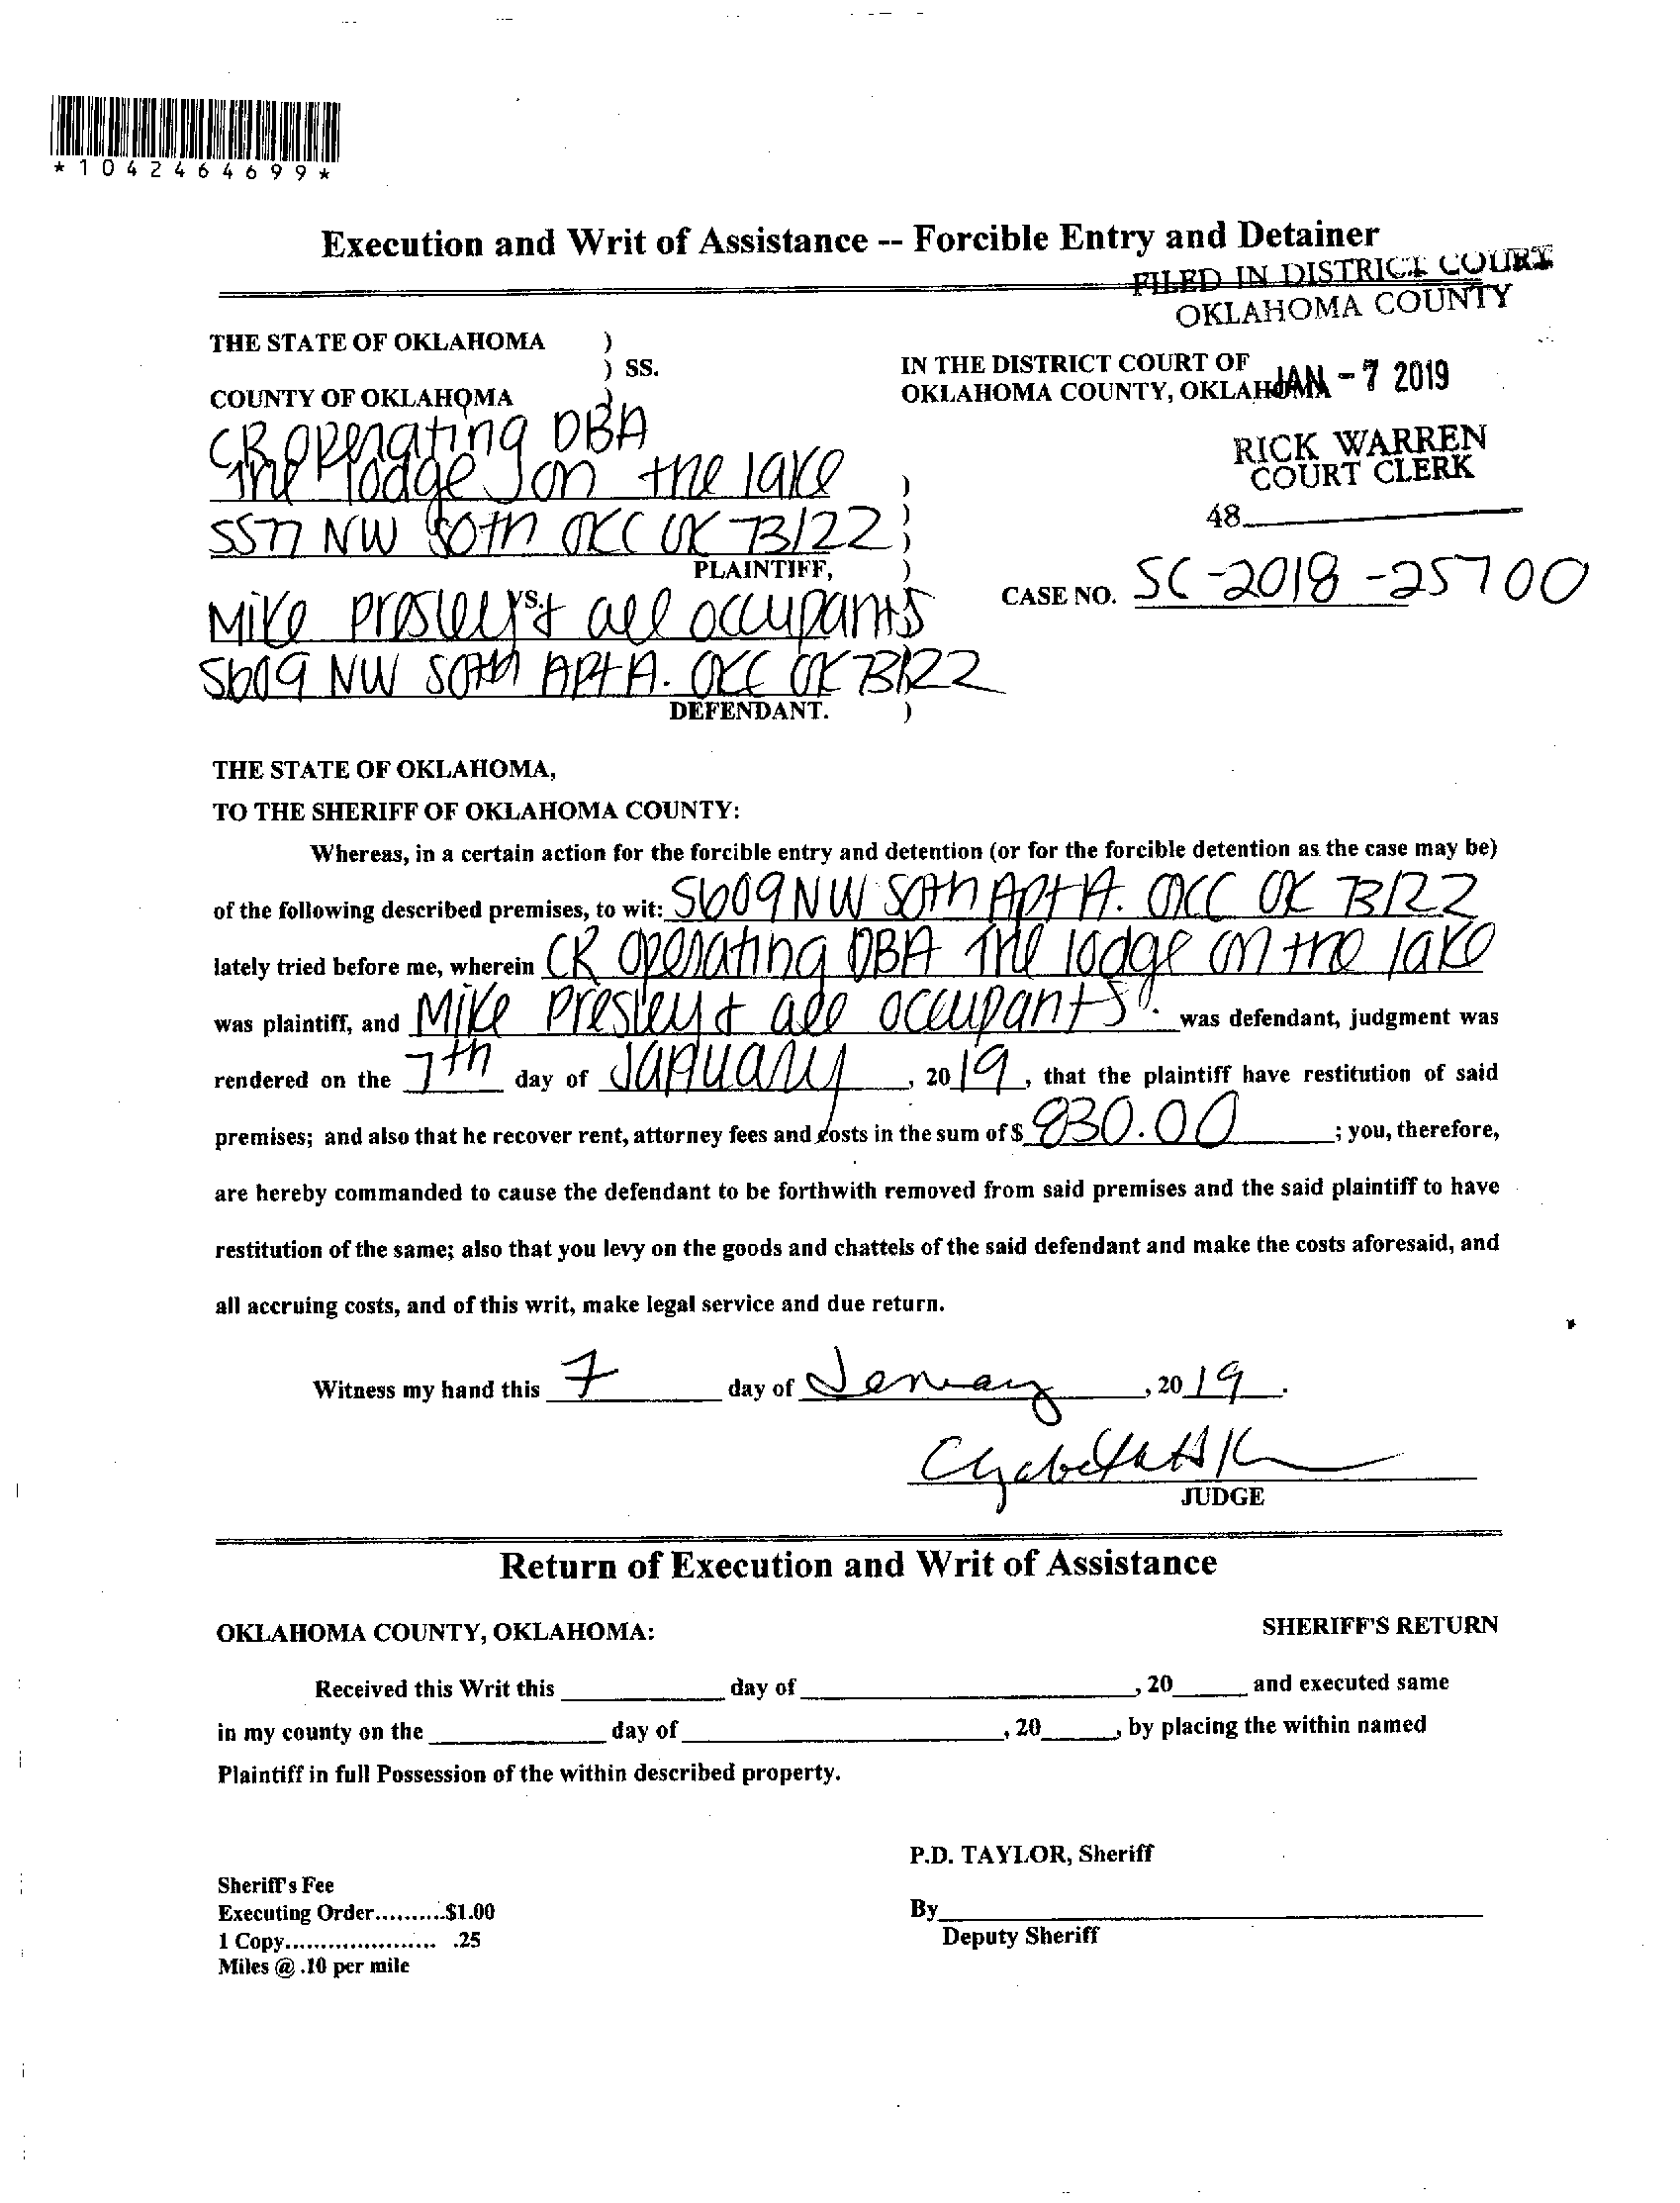 *1042464699*
Execution and Writ of Assistance -- Forcible Entry and Detainer
FILED IN DISTRICT COURT
OKLAHOMA COUNTY
THE STATE OF OKLAHOMA )
) SS.
COUNTY OF OKLAHOMA )
IN THE DISTRICT COURT OF
OKLAHOMA COUNTY, OKLAHOMA
JAN - 7 2019
RICK WARREN
COURT CLERK
48
CR Operating DBA
The lodge on the lake )
5577 NW 50th OKC OK 73122 )
PLAINTIFF, )
vs.
CASE NO. SC-2018-25700
Mike Presley & all occupants
5609 NW 50th APt A. OKC OK 73122
DEFENDANT. )
THE STATE OF OKLAHOMA,
TO THE SHERIFF OF OKLAHOMA COUNTY:
Whereas, in a certain action for the forcible entry and detention (or for the forcible detention as the case may be)
of the following described premises, to wit: 5609 NW 50th APt A. OKC OK 73122
lately tried before me, wherein CR Operating DBA The lodge on the lake
was plaintiff, and Mike Presley & all occupants. was defendant, judgment was
rendered on the 7th day of January, 2019, that the plaintiff have restitution of said
premises; and also that he recover rent, attorney fees and costs in the sum of $ 830.00; you, therefore,
are hereby commanded to cause the defendant to be forthwith removed from said premises and the said plaintiff to have
restitution of the same; also that you levy on the goods and chattels of the said defendant and make the costs aforesaid, and
all accruing costs, and of this writ, make legal service and due return.
Witness my hand this 7 day of January, 2019.
JUDGE
Return of Execution and Writ of Assistance
OKLAHOMA COUNTY, OKLAHOMA:
SHERIFF'S RETURN
Received this Writ this day of , 20 and executed same
in my county on the day of , 20 , by placing the within named
Plaintiff in full Possession of the within described property.
P.D. TAYLOR, Sheriff
Sheriff's Fee
Executing Order..........$1.00
1 Copy..................... .25
Miles @ .10 per mile
By
Deputy Sheriff